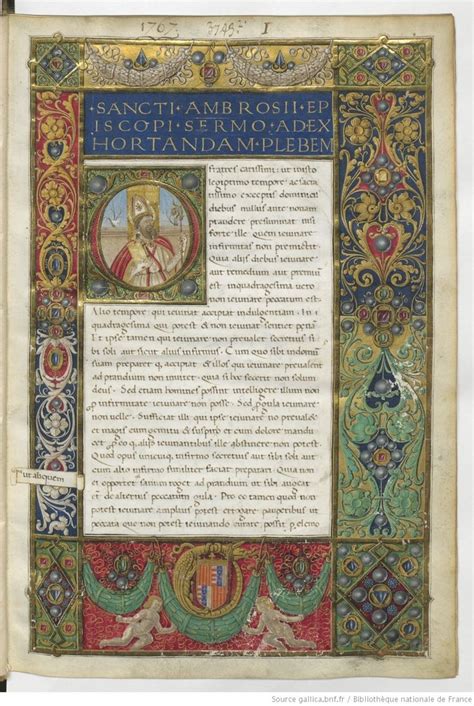 1767. 3745.2 I
SANCTI · AMBROSII · EP
ISCOPI · SERMO · ADEX
HORTANDAM · PLEBEM
fratres carissimi: ut iusto
legiptimo tempore ac sacra
tissimo exceptis dominicis
diebus nullus ante nonam
prandere presumat nisi
forte ille quem ieiunare
infirmitas non premictit
Quia aliis diebus ieiunare
aut remedium aut premium
est inquadragesima uero
non ieiunare peccatum est
Alio tempore qui ieiunat accipiet indulgentiam. In
quadragesima qui potest & non ieiunat sentiet penā
Et ipse tamen qui ieiunare non preualet secretius si
bi soli aut sicut alius infirmus
suam preparet accipiat & illos qui ieiunare preualent
ad prandium non inuitet
deus Sed etiam homines possint intelligere illum non
infirmitate ieiunare non posse. Sed gula ieiunare
non uelle. Sufficiat illi quod ipse ieiunare no preualet &
magis cum gemitu & suspirio & cum dolore mandu
cet aliis ieiunantibus ille abstinere non potest.
Quod opus unicuique infirmo secretius aut sibi soli aut
cum alio infirmo similiter faciat preparari Quia non
ei opportet sanum roget ad prandium ut sibi augeat
& de alterius peccatum gula Pro eo tamen quod non
potest ieiunare amplius potest erogare pauperibus ut
peccata que non potest ieiunando curare possit
Fut abquem
Source gallica.bnf.fr / Bibliothèque nationale de France